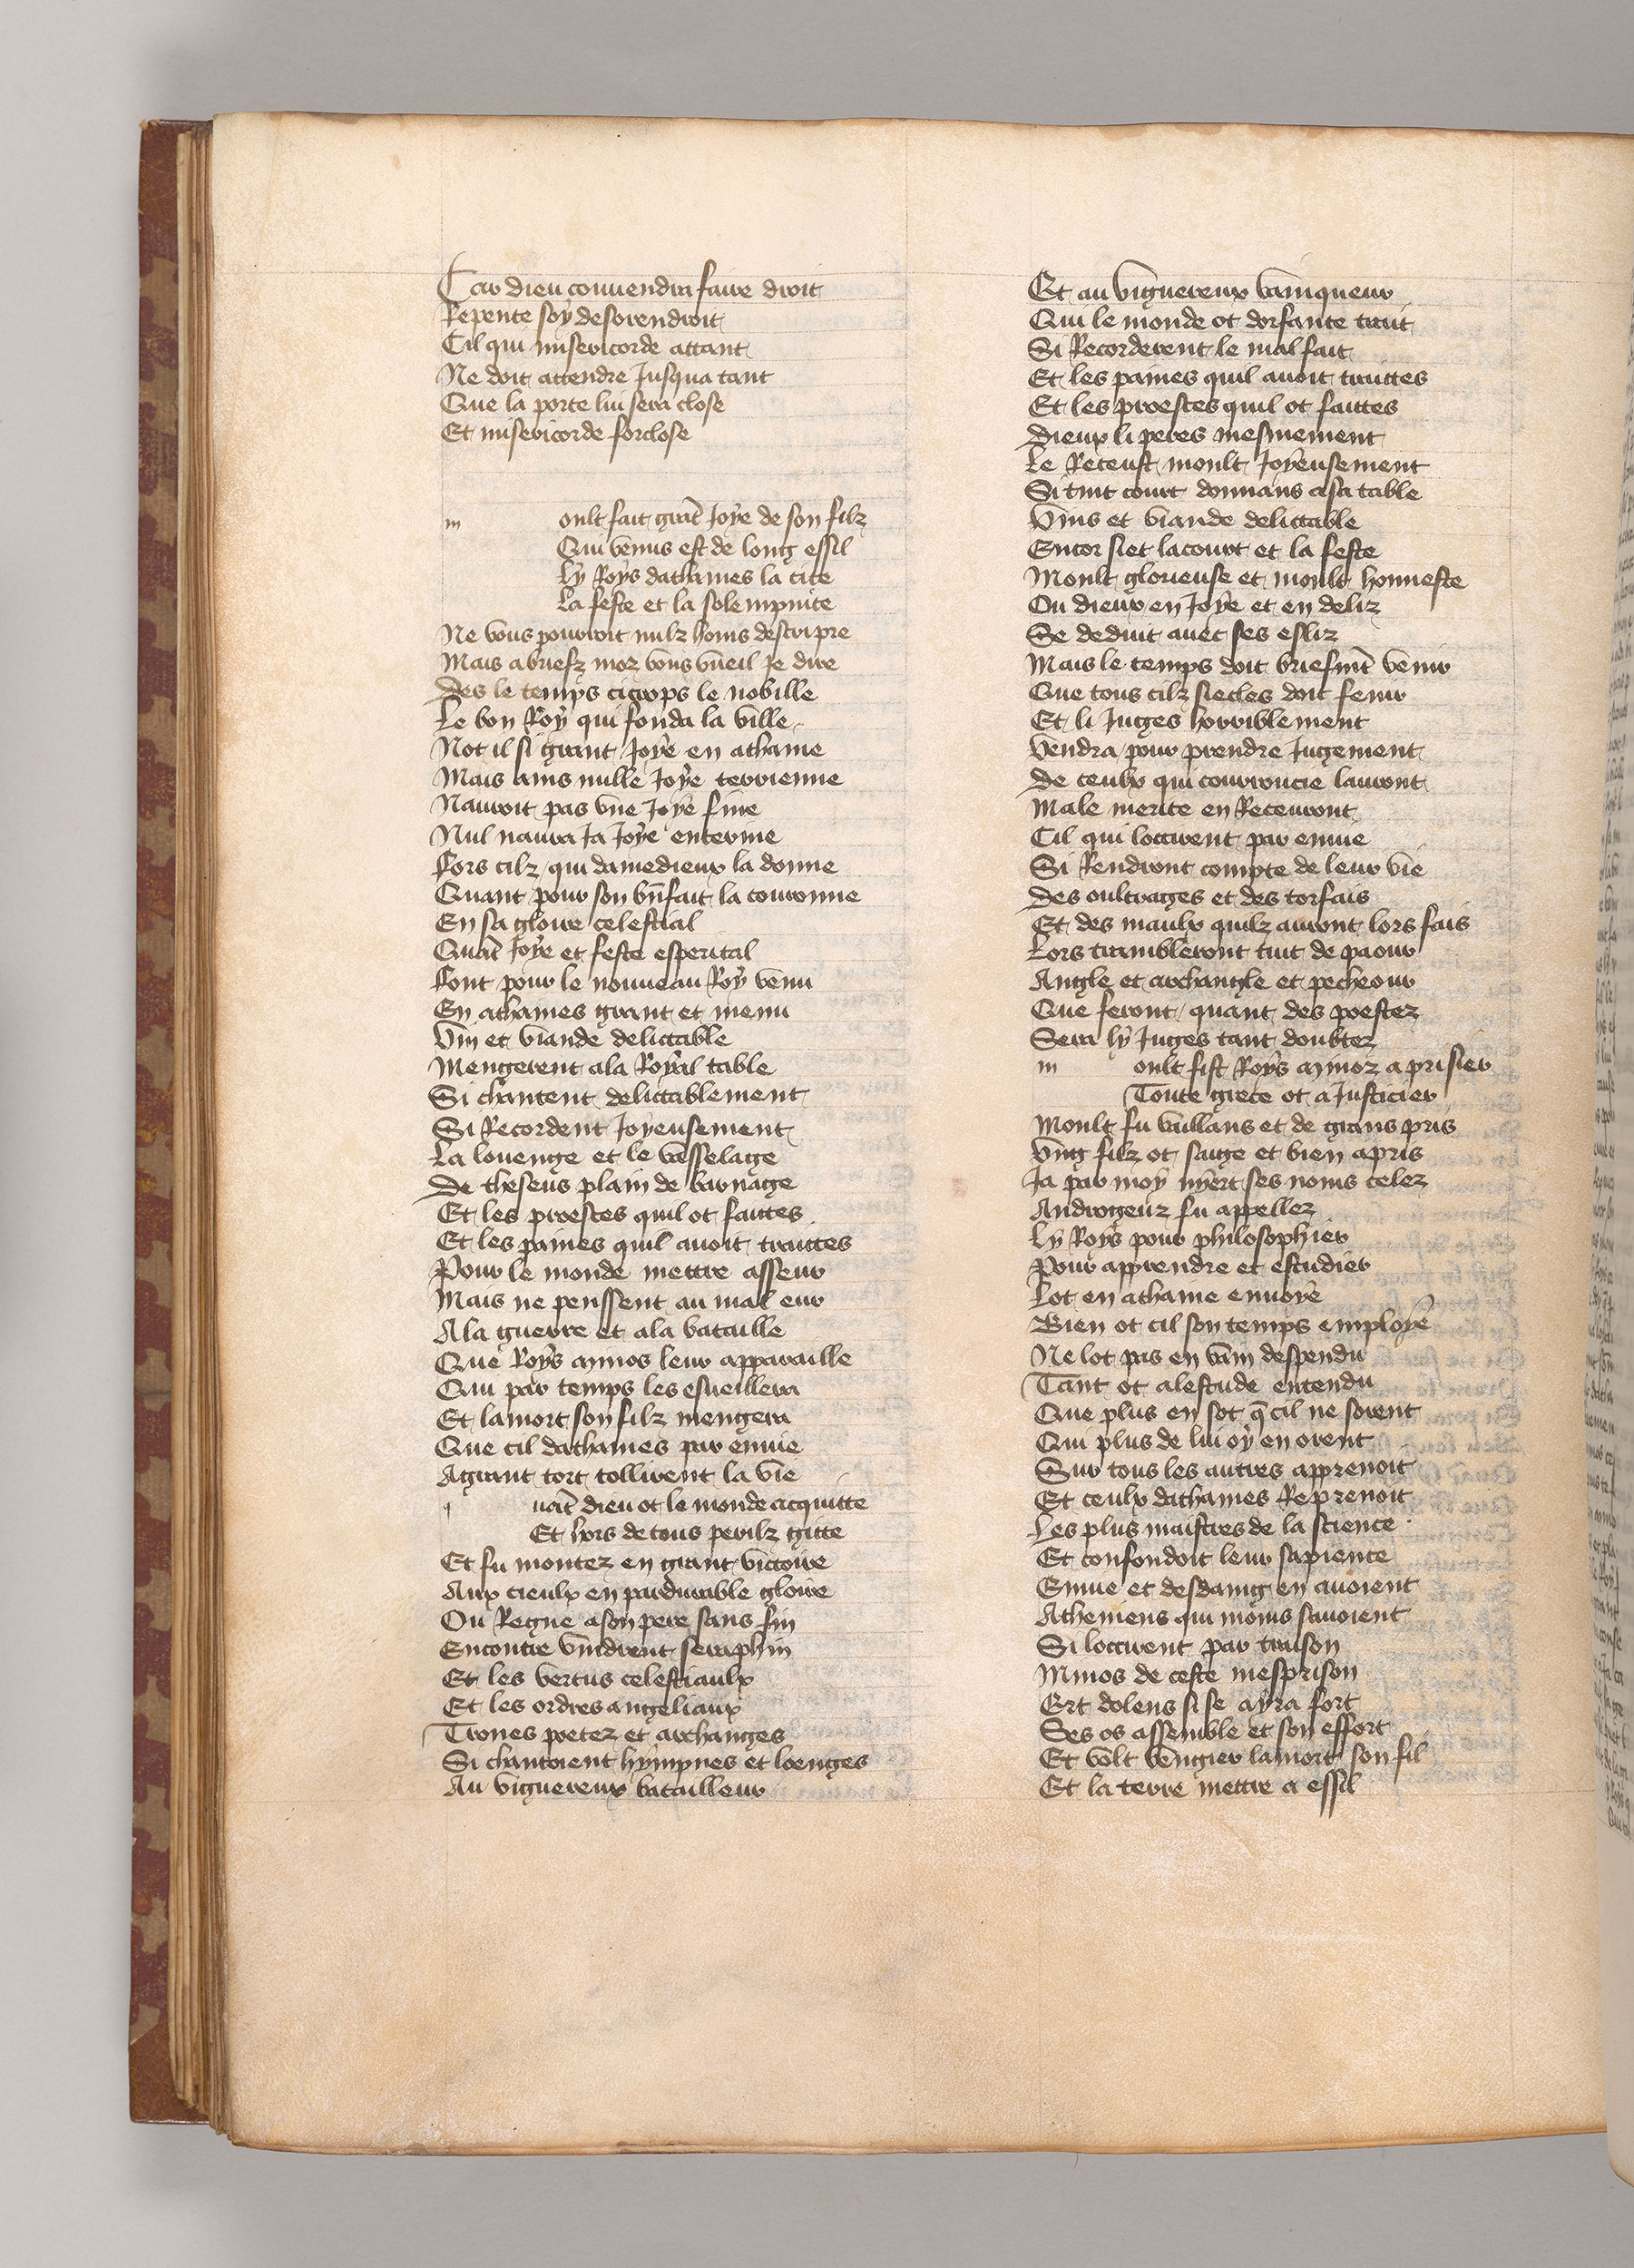 Car dieu conuendra faire droit
Repente soy desorendroit
Cil qui misericorde attant
Ne doit attendre Jusqua tant
Que la porte lui sera close
Et misericorde forclose
m oult fait grant Joye de son filz
Qui venus est de long essil
Ly Roys dathaines la cite
La feste et la solempnite
Ne vous pourroit nulz homs descripre
Mais a briefz moz vous vueil Je dire
Des le temps cicrops le nobille
Le bon Roy qui fonda la ville
Not il si grant Joye en athaine
Mais ains nulle Joye terrienne
Nauroit pas vne Joye fine
Nul naura Ja Joye enterine
Fors cilz qui damedieux la donne
Quant pour son bnfait la couronne
En sa gloire celestial
Quant Joye et feste esperital
Font pour le nouueau Roy venu
En athaines grant et menu
Vin et viande delictable
Mengerent ala Royal table
Si chantent delictablement
Si Recordent Joyeusement
La louenge et le vasselage
De theseus plain de barnage
Et les proestes quil ot faittes
Et les paines quil auoit traittes
Pour le monde mettre asseur
Mais ne penssent au mal eur
Ala guerre et ala bataille
Que Roys minos leur apparaille
Qui par temps les esueillera
Et lamort son filz mengera
Que cil dathaines par enuie
Agrant tort tollirent la vie
q uant dieu ot le monde acquitte
Et hors de tous perilz gitte
Et fu montez en grant victoire
Aux cieulx en pardurable gloire
Ou Regne a son pere sans fin
Encontre vindrent seraphin
Et les vertus celestiaulx
Et les ordres angeliaux
Trones poetez et archanges
Si chantoient hympnes et loenges
Au viguereux batailleur
Et au viguereux vainqueur
Qui le monde ot dorfante trait
Si Recorderent le mal fait
Et les paines quil auoit traittes
Et les proestes quil ot faittes
Dieux li peres mesmement
Le Receust moult Joyeusement
Si tint court donnans a sa table
Vins et viande delictable
Encor siet lacourt et la feste
Moult glorieuse et moult honneste
Ou dieux en Joye et en deliz
Se deduit auec ses esliz
Mais le temps doit briefmt venir
Que tous cilz siecles doit fenir
Et li Juges horriblement
Vendra pour prendre Jugement
De ceulx qui courroucie lauront
Male merite en Receuront
Cil qui loccirent par enuie
Si Rendront compte de leur vie
Des oultrages et des torfais
Et des maulx quilz auront lors fais
Lors trambleront tuit de paour
Angle et archangle et pecheour
Que feront quant des poestez
Sera ly Juges tant doubtez
m oult fist Roys minoz a prisier
Toute grece ot a Justicier
Moult fu vaillans et de grans pris
Vng filz ot saige et bien apris
Ja par moy nyert ses noms celez
Androgeuz fu appellez
Ly Roys pour philosophier
Pour apprendre et estudier
Lot en athaine enuoye
Bien ot cil son temps employe
Ne lot pas en vain despendu
Tant ot alestude entendu
Que plus en sot q̄ cil ne sorent
Qui plus de lui oy en orent
Sur tous les autres apprenoit
Et ceulx dathaines Reprenoit
Les plus maistres de la science
Et confondoit leur sapience
Enuie et desdaing en auoient
Atheniens qui moins sauoient
Si loccirent par traison
Minos de ceste mesprison
Ert dolens si se ayra fort
Ses os assemble et son effort
Et volt vengier lamort son fil
Et la terre mettre a essil